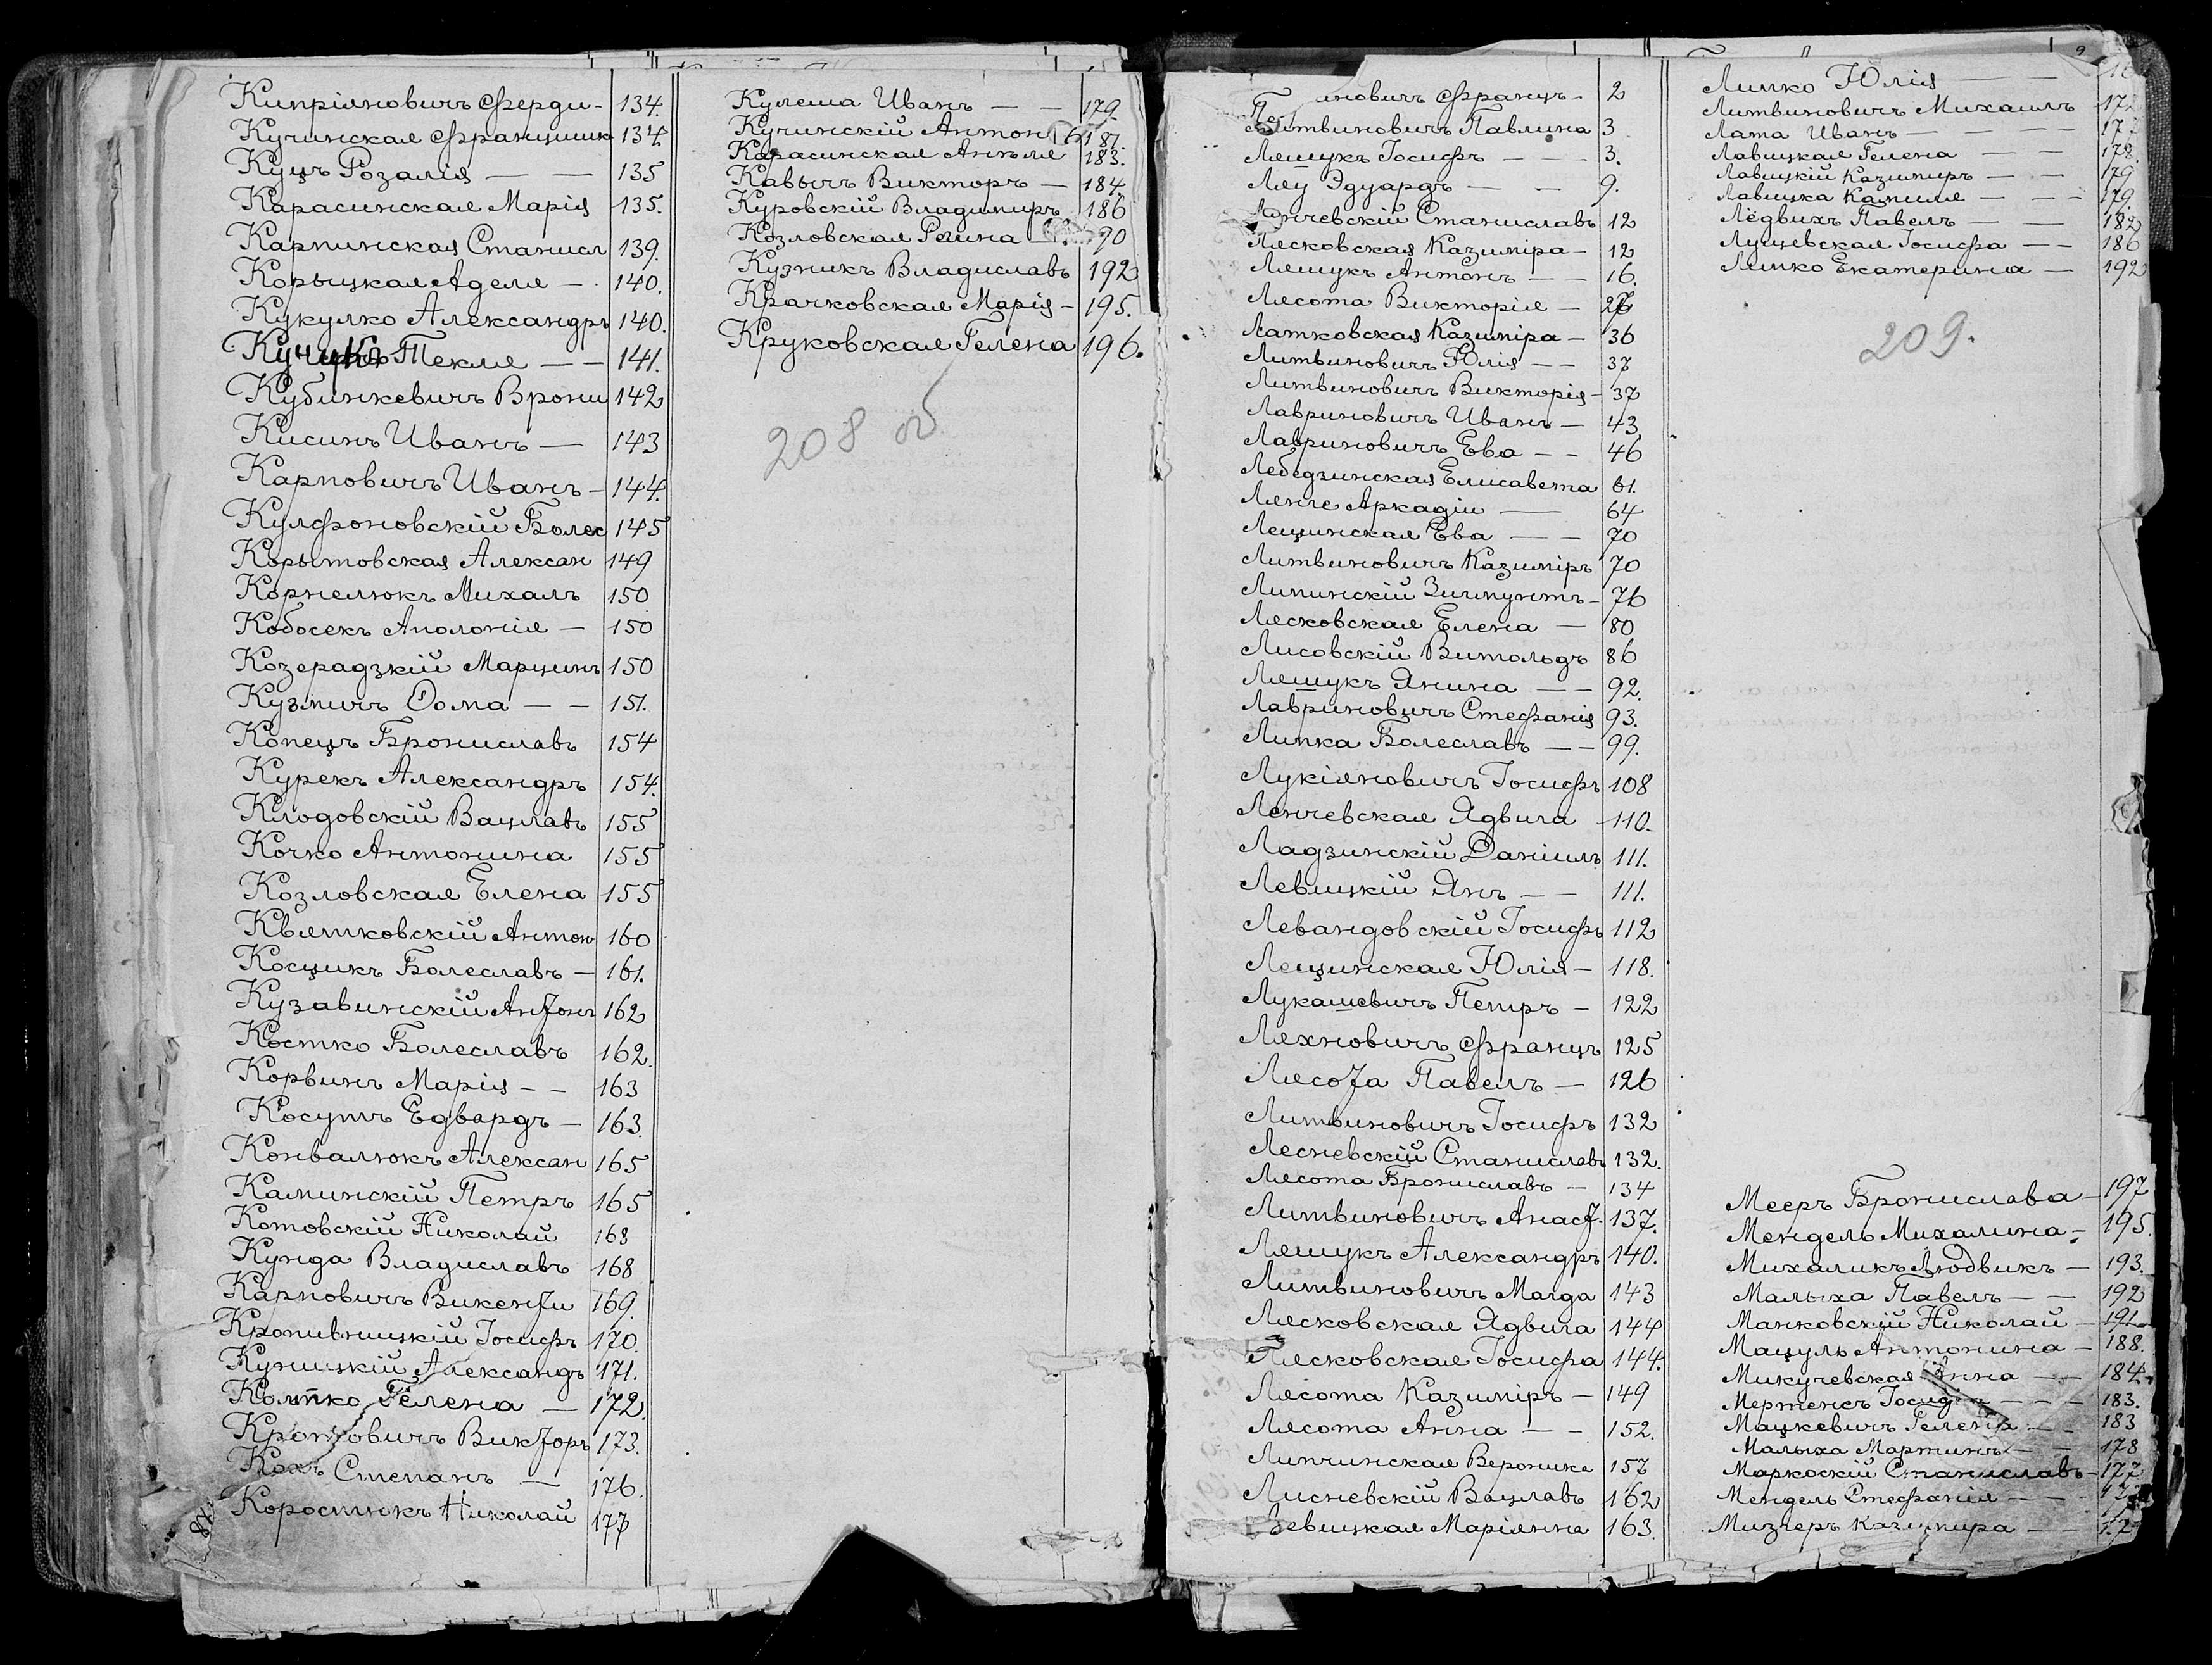 Кипріяновичъ Ферди- 134.
Кучинская Францишк 134
Куцъ Розалія — — 135
Карасинская Марія 135.
Карпинская Станисл 139.
Корыцкая Аделя — 140.
Кукулко Александръ 140.
Текля — — 141.
Кубинкевичъ Врони 142
Кисинъ Иванъ — 143
Карповичъ Иванъ — 144.
Кулфоновскій Болес 145
Корытовская Алексан 149
Корнелюкъ Михалъ 150
Кобосекъ Аполонія — 150
Козерадзкій Марцинъ 150
Кузмичъ Ѳома — — 151.
Копецъ Брониславъ 154
Курекъ Александръ 154.
Клодовскій Вацлавъ 155
Кочко Антонина 155
Козловская Елена 155
Квятковскій Антон 160
Косцикъ Болеславъ — 161.
Кузавинскій Антонъ 162
Костко Болеславъ 162.
Корвинъ Марія — — 163
Косутъ Едвардъ — 163.
Конвалюкъ Алексан 165
Каминскій Петръ 165
Котовскій Николай 168
Кунда Владиславъ 168
Карповичъ Викенти 169.
Кропивницкій Іосифъ 170.
Куницкій Александъ 171.
Гелена — 172.
Викторъ 173.
Кохъ Степанъ — 176.
Николай 177
Кулеша Иванъ — — 179.
Кучинскій Антон 181.
Карасинская Анѣля 183.
Кавычъ Викторъ — 184.
Куровскій Владимиръ 186
Козловская 90
Кузникъ Владиславъ 192
Крачковская Марія — 195.
Круковская Гелена 196.
208 об
новичъ Францъ — 2
Литвиновичъ Павлина 3
Ляшукъ Іосифъ — — 3.
Ляу Эдуардъ — — 9.
нчевскій Станиславъ 12
Лясковская Казиміра — 12
Ляшукъ Антонъ — — 16.
Лясота Викторія —
Латковская Казиміра — 36
Литвиновичъ Юлія — — 37
Литвиновичъ Викторія — 37
Лавриновичъ Иванъ — 43
Лавриновичъ Ева — — 46
Лебедзинская Елисавета 61.
Лянге Аркадіи — 64
Лещинская Ева — — 70
Литвиновичъ Казиміръ 70
Липинскій Зигмунтъ — 76
Лясковская Елена — 80
Лисовскій Витольдъ 86
Ляшукъ Янина — — 92.
Лавриновичъ Стефанія 93.
Липка Болеславъ — — 99.
Лукіяновичъ Іосифъ 108
Ленчевская Ядвига 110.
Ладзинскій Даніилъ 111.
Левицкій Янъ — — 111.
Левандовскій Іосифъ 112
Лещинская Юлія — 118.
Лукашевичъ Петръ — 122
Ляхновичъ Францъ 125
Лясота Павелъ — 126
Литвиновичъ Іосифъ 132
Лесневскій Станиславъ 132.
Лясота Брониславъ — 134
Литвиновичъ Анаст. 137.
Ляшукъ Александръ 140.
Литвиновичъ Магда 143
Лясковская Ядвига 144
Лясковская Іосифа 144.
Лясота Казиміръ — 149
Лясота Анна — — 152.
Липчинская Вероника 157
Лисневскій Вацлавъ 162
Левицкая Маріянна 163.
9
Липко Юлія — —
Литвиновичъ Михаилъ 172
Лата Иванъ — — — 177
Лавицкая Гелена — — 178.
Лавицкій Казимиръ — — 179
Лавицка Камиля — — — 179.
Лёдвихъ Павелъ — 182
Лущевская Іосифа — — 186
Липко Екатерина — 192
209.
Мееръ Бронислава — 197
Мендель Михалина — 195.
Михаликъ Людвикъ — 193.
Малыха Павелъ — — 192
Манковскій Николай — 191
Мацуль Антонина — 188.
Микучевская Анна — — 184.
Мертенсъ — — — 183.
Мацкевичъ Гелена — — 183
Малыха Мартинъ — — 178
Маркоскій Станиславъ — 177
Мендель Стефанія — —
Казимира — —